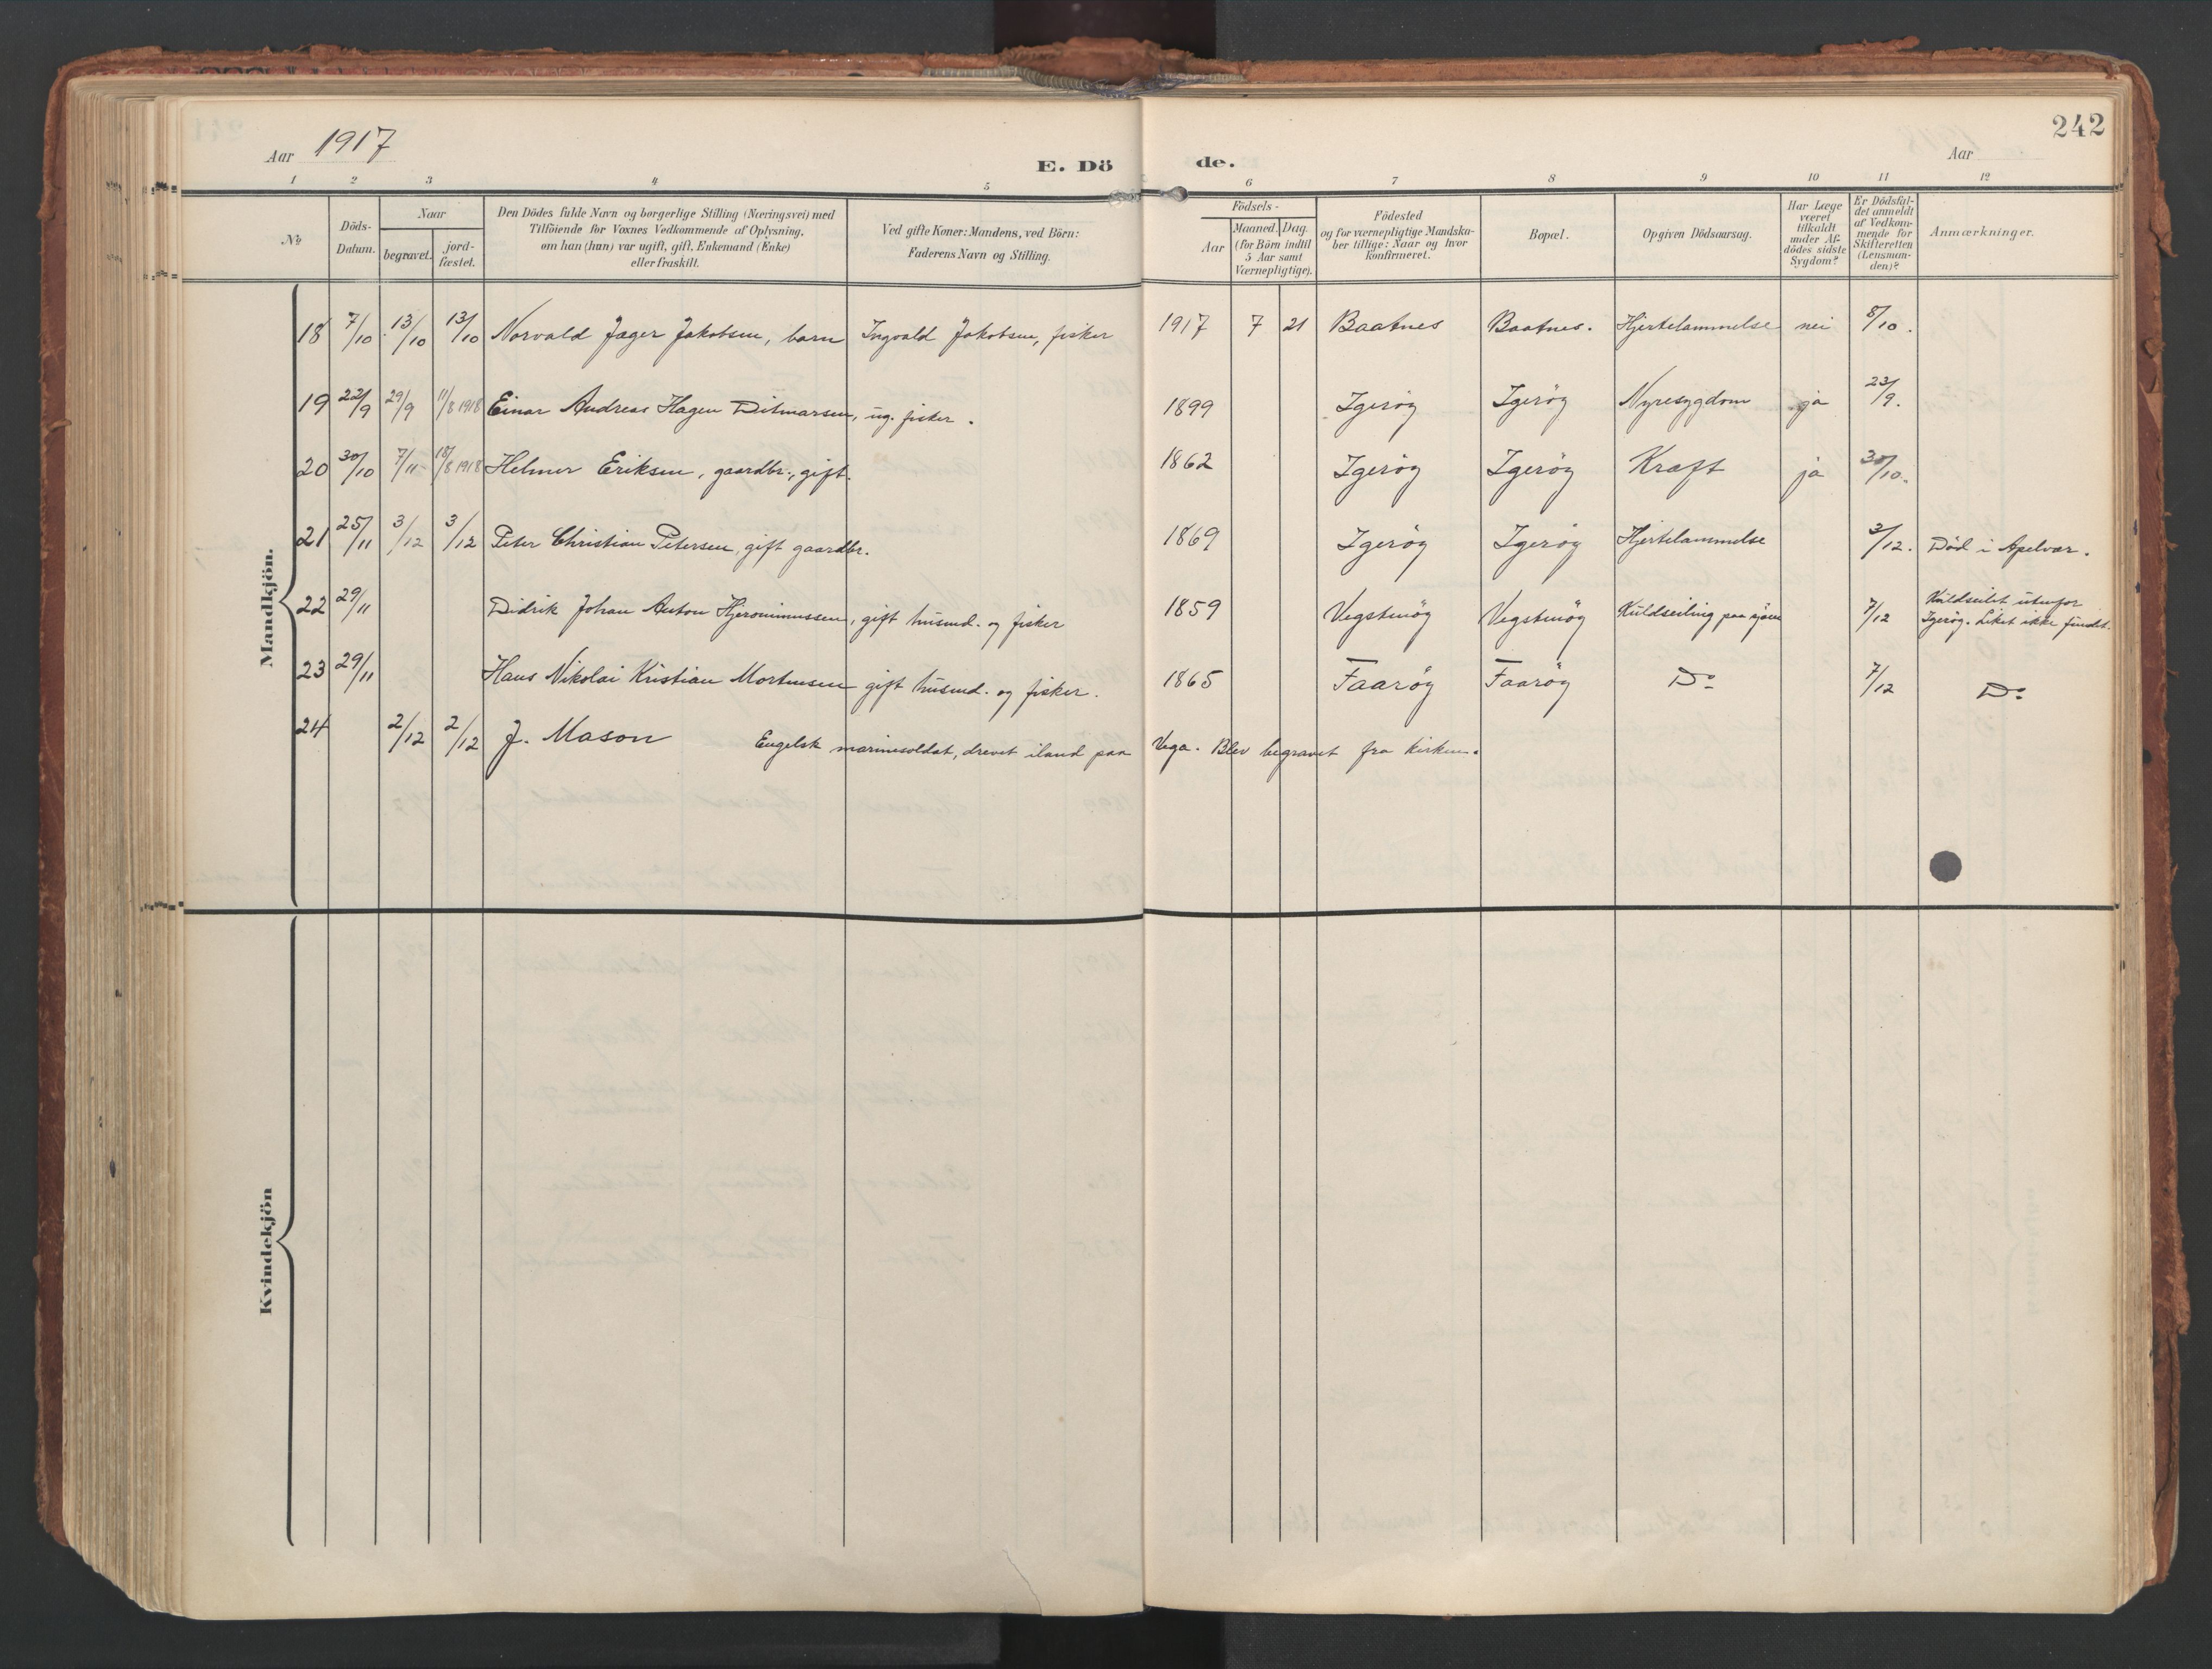 242
Aar 1917
E. Döde.
Aar
1 2 3 4 5 6 7 8 9 10 11 12
№
Döds-Datum.
Naar
begravet.
jord-fæstet.
Den Dödes fulde Navn og borgerlige Stilling (Næringsvei) med
Tilföiende for Voxnes Vedkommende af Oplysning,
om han (hun) var ugift, gift, Enkemand (Enke)
eller fraskilt.
Ved gifte Koner: Mandens, ved Börn:
Faderens Navn og Stilling.
Födsels-
Aar
Maaned. Dag.
(for Börn indtil
5 Aar samt
Værnepligtige).
Födested
og for værnepligtige Mandska-
ber tillige: Naar og hvor
konfirmeret.
Bopæl.
Opgiven Dödsaarsag.
Har Læge
været
tilkaldt
under Af-
dödes sidste
Sygdom?
Er Dödsfal-
det anmeldt
af Vedkom-
mende for
Skifteretten
(Lensman-
den)?
Anmærkninger.
Mandkjön.
18 7/10 13/10 13/10 Norvald Jæger Jakobsen, barn Ingvald Jakobsen, fisker 1917 7 21 Baatnes Baatnes. Hjertelammelse nei 8/10.
19 22/9 29/9 11/8 1918 Einar Andreas Hagen Ditmarsen, ug. fisker. 1899 Igerøy Igerøy Nyresygdom ja 23/9.
20 30/10 7/11 18/8 1918 Helmer Eriksen, gaardbr., gift. 1862 Igerøy Igerøy Kræft ja 30/10.
21 25/11 3/12 3/12 Peter Christian Petersen, gift gaardbr. 1869 Igerøy Igerøy Hjertelammelse 3/12. Död i Apelvær.
22 29/11 Didrik Johan Anton Hjeronimussen, gift husmd. og fisker 1859 Vegstenöy Vegstenöy Kuldseiling paa sjöen 7/12 Kuldseilet utenfor
Igerøy. Liket ikke fundet.
23 29/11 Hans Nikolai Kristian Mortensen gift husmd. og fisker. 1865 Faarøy Faarøy Do 7/12 Do
24 2/12 2/12 J. Mason Engelsk marinesoldat, drevet iland paa Vega. Blev begravet fra kirken.
Kvindekjön